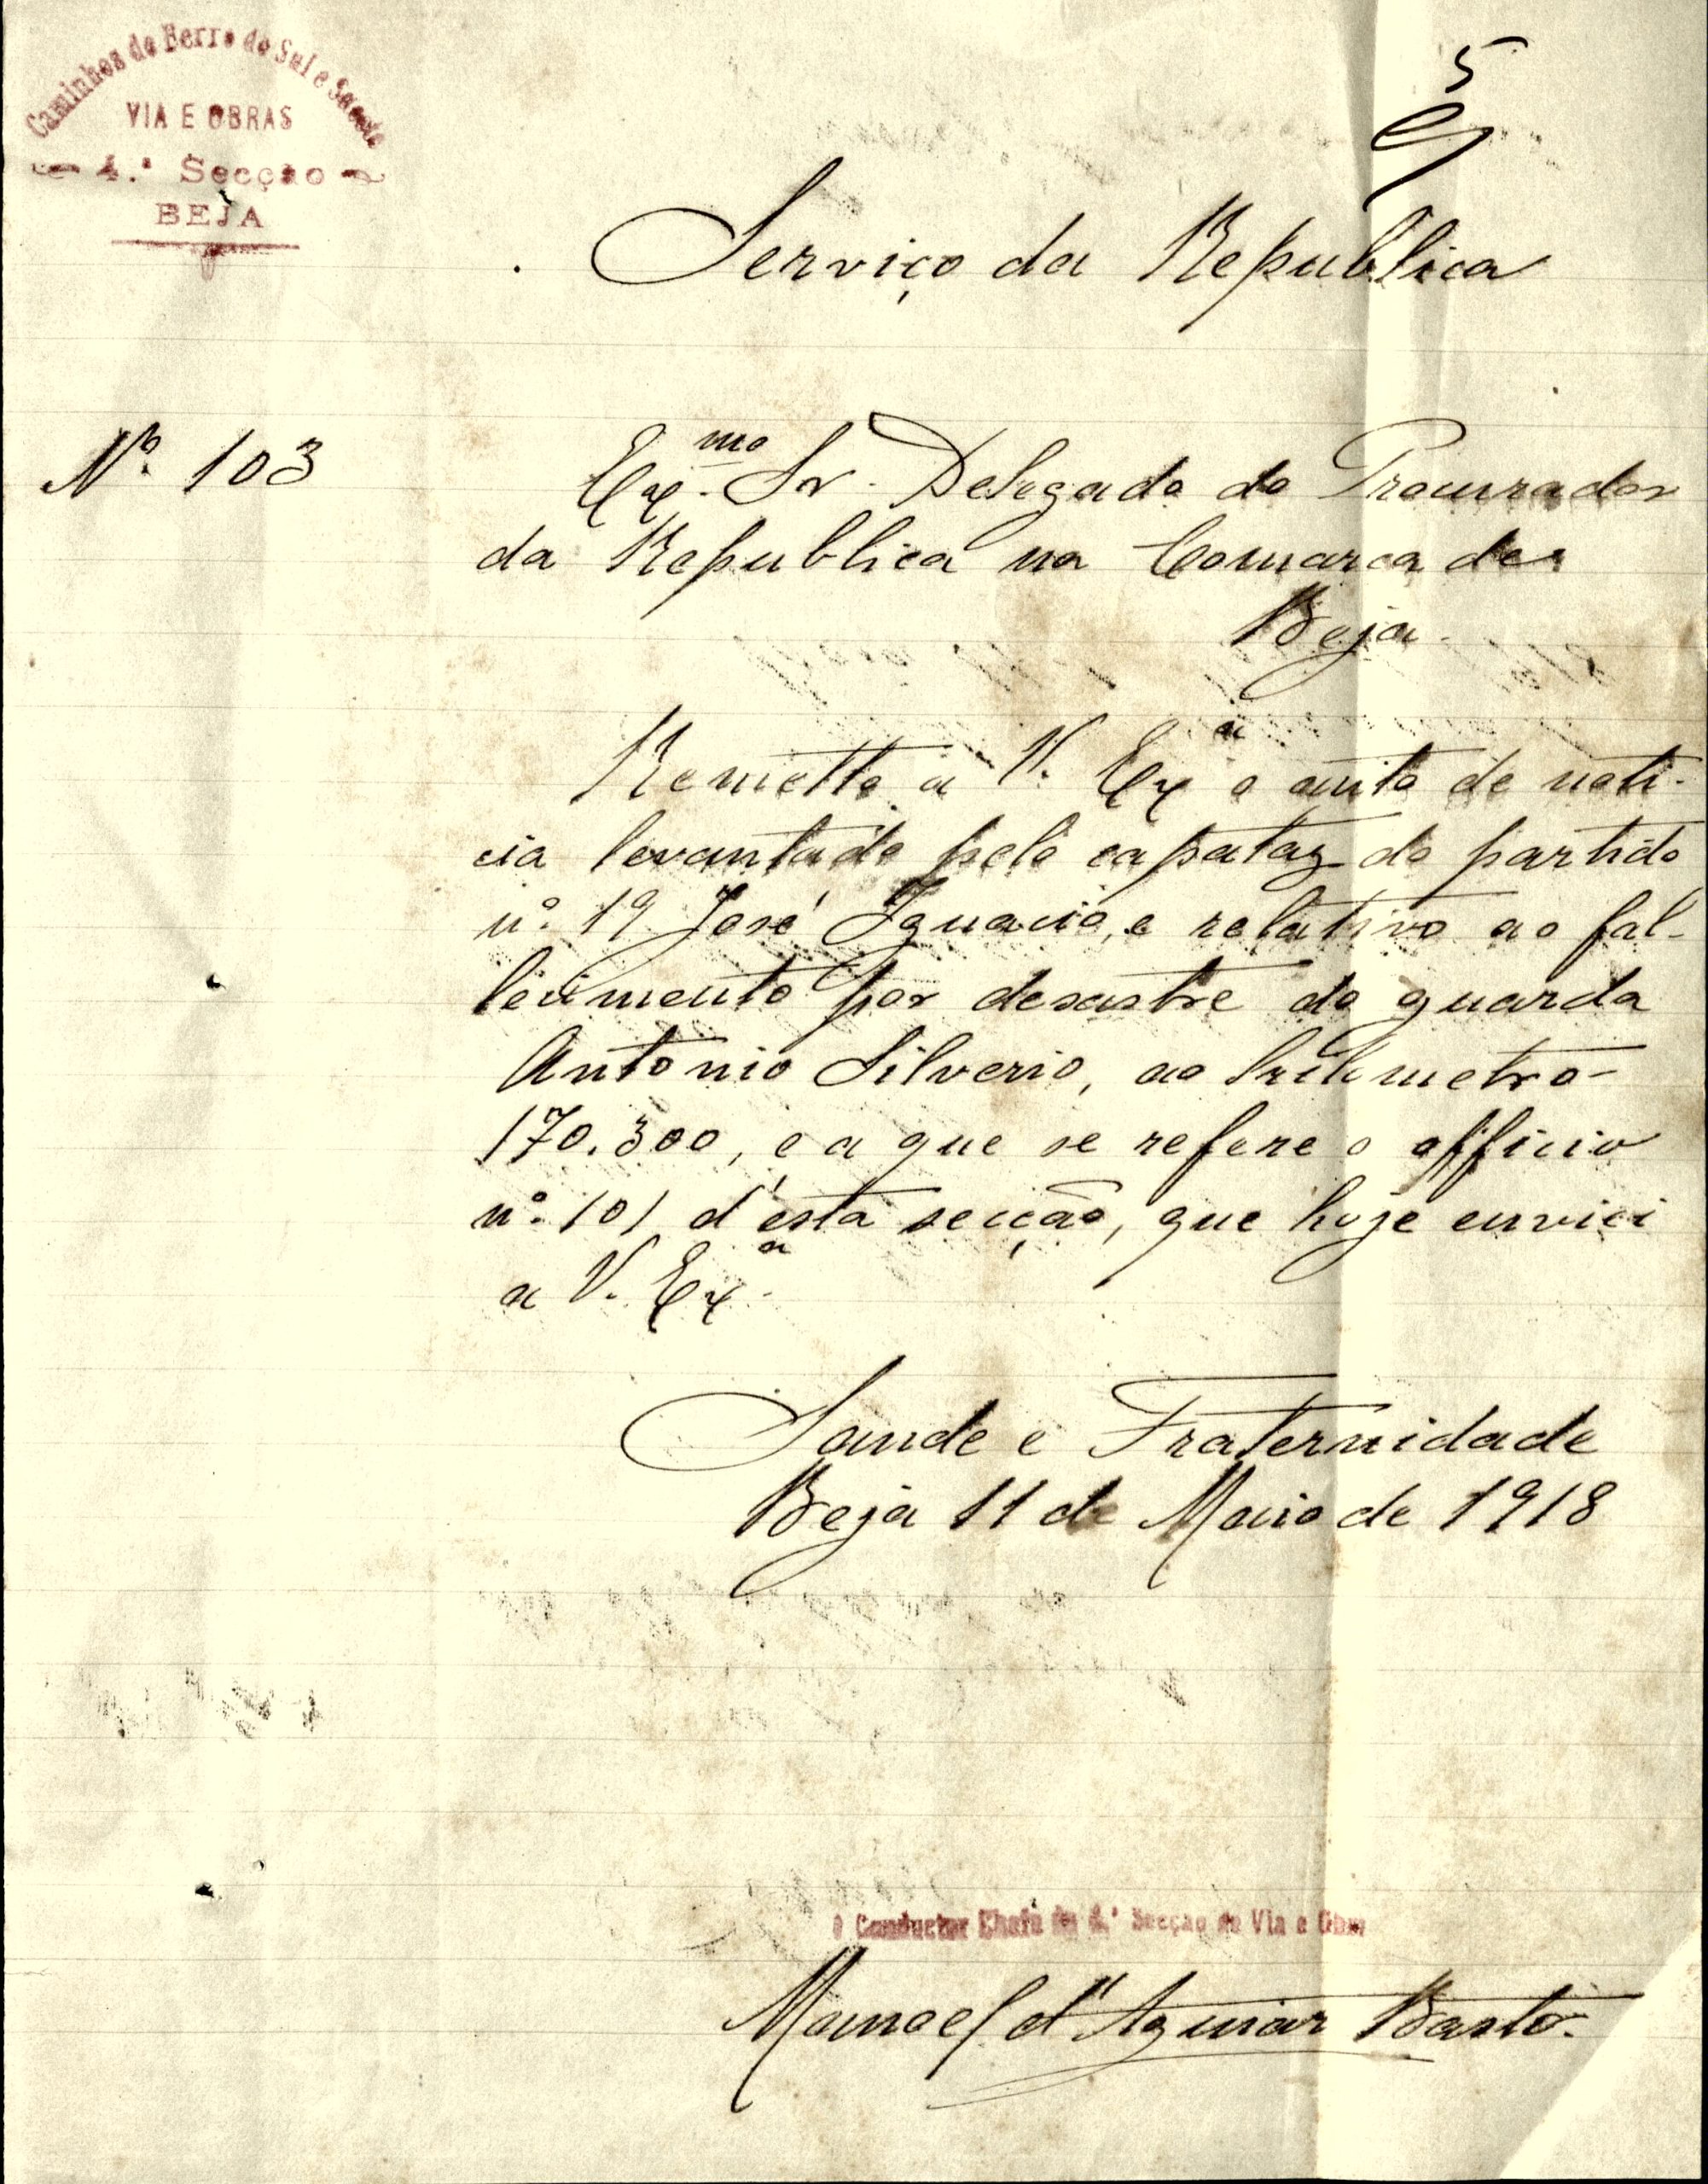 Caminhos de Ferro do Sul e Sueste
VIA E OBRAS
4.ª Secção
BEJA
5
Serviço da Republica
Nº. 103
Exmo. Sr. Delegado do Procurador
da Republica na Comarca de
Beja.
Remetto a V. Exª o auto de noti-
cia levantado pelo capataz do partido
nº. 19 José Ignacio, e relativo ao fal-
lecimento por desastre do guarda
Antonio Silverio, ao kilometro
170.300, e a que se refere o officio
nº. 101 d'esta secção, que hoje enviei
a V. Exª.
Saude e Fraternidade
Beja 11 de Maio de 1918
O Conductor Chefe da 4.ª Secção de Via e Obras
Manoel d'Aguiar Basto.